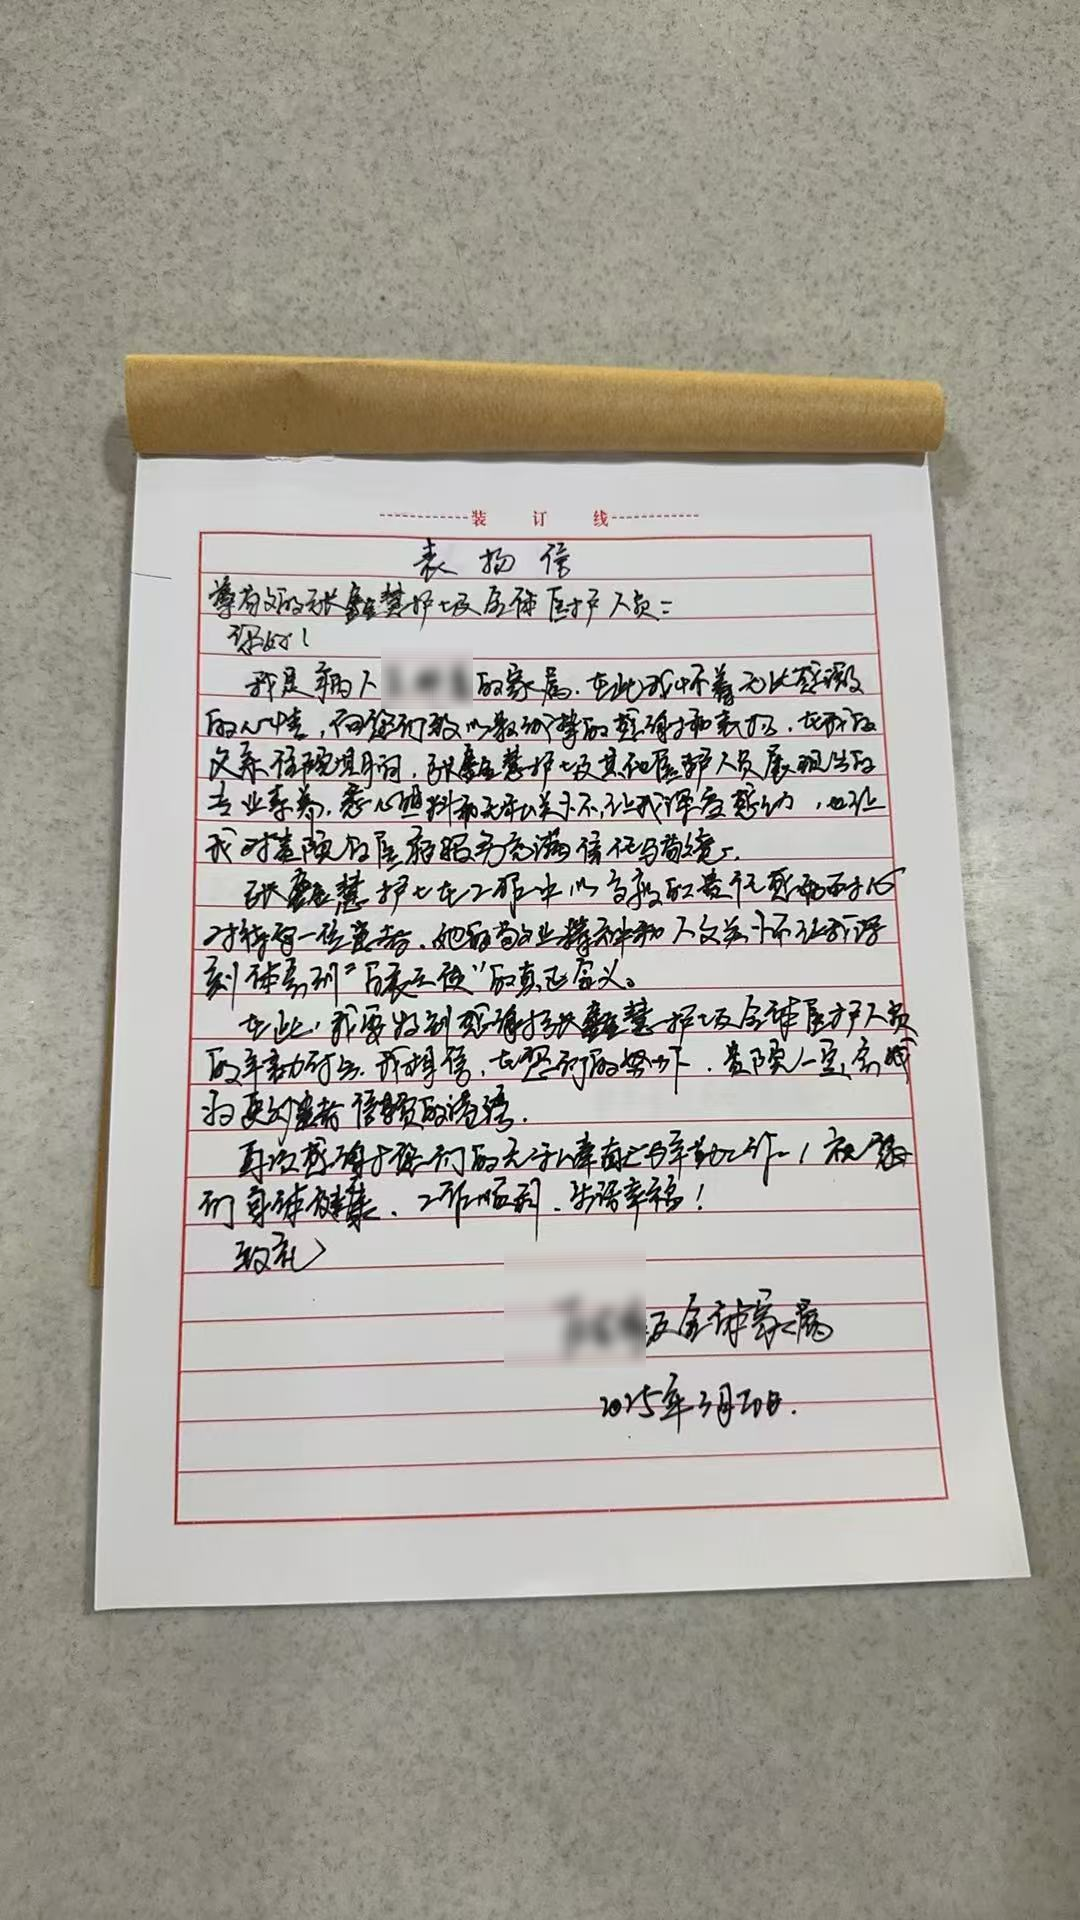 装 订 线
表扬信
尊敬的张鑫慧护士及全体医护人员：
您好！
我是病人 的家属，在此我怀着无比感激
的心情，向您们致以最诚挚的感谢和表扬，在我的
父亲住院期间，张鑫慧护士及其他医护人员展现出的
专业素养、悉心照料和无私关怀，让我深受感动，也让
我对贵院的医疗服务充满信任与敬意。
张鑫慧护士在工作中以高度的责任感和耐心
对待每一位患者，她的敬业精神和人文关怀让我深
刻体会到“白衣天使”的真正含义。
在此，我要特别感谢张鑫慧护士及全体医护人员
的辛勤付出，我相信，在您们的努力下，贵院一定会成
为更多患者信赖的港湾。
再次感谢您们的无私奉献与辛勤工作！祝您
们身体健康、工作顺利、生活幸福！
致礼
及全体家属
2025年3月20日.